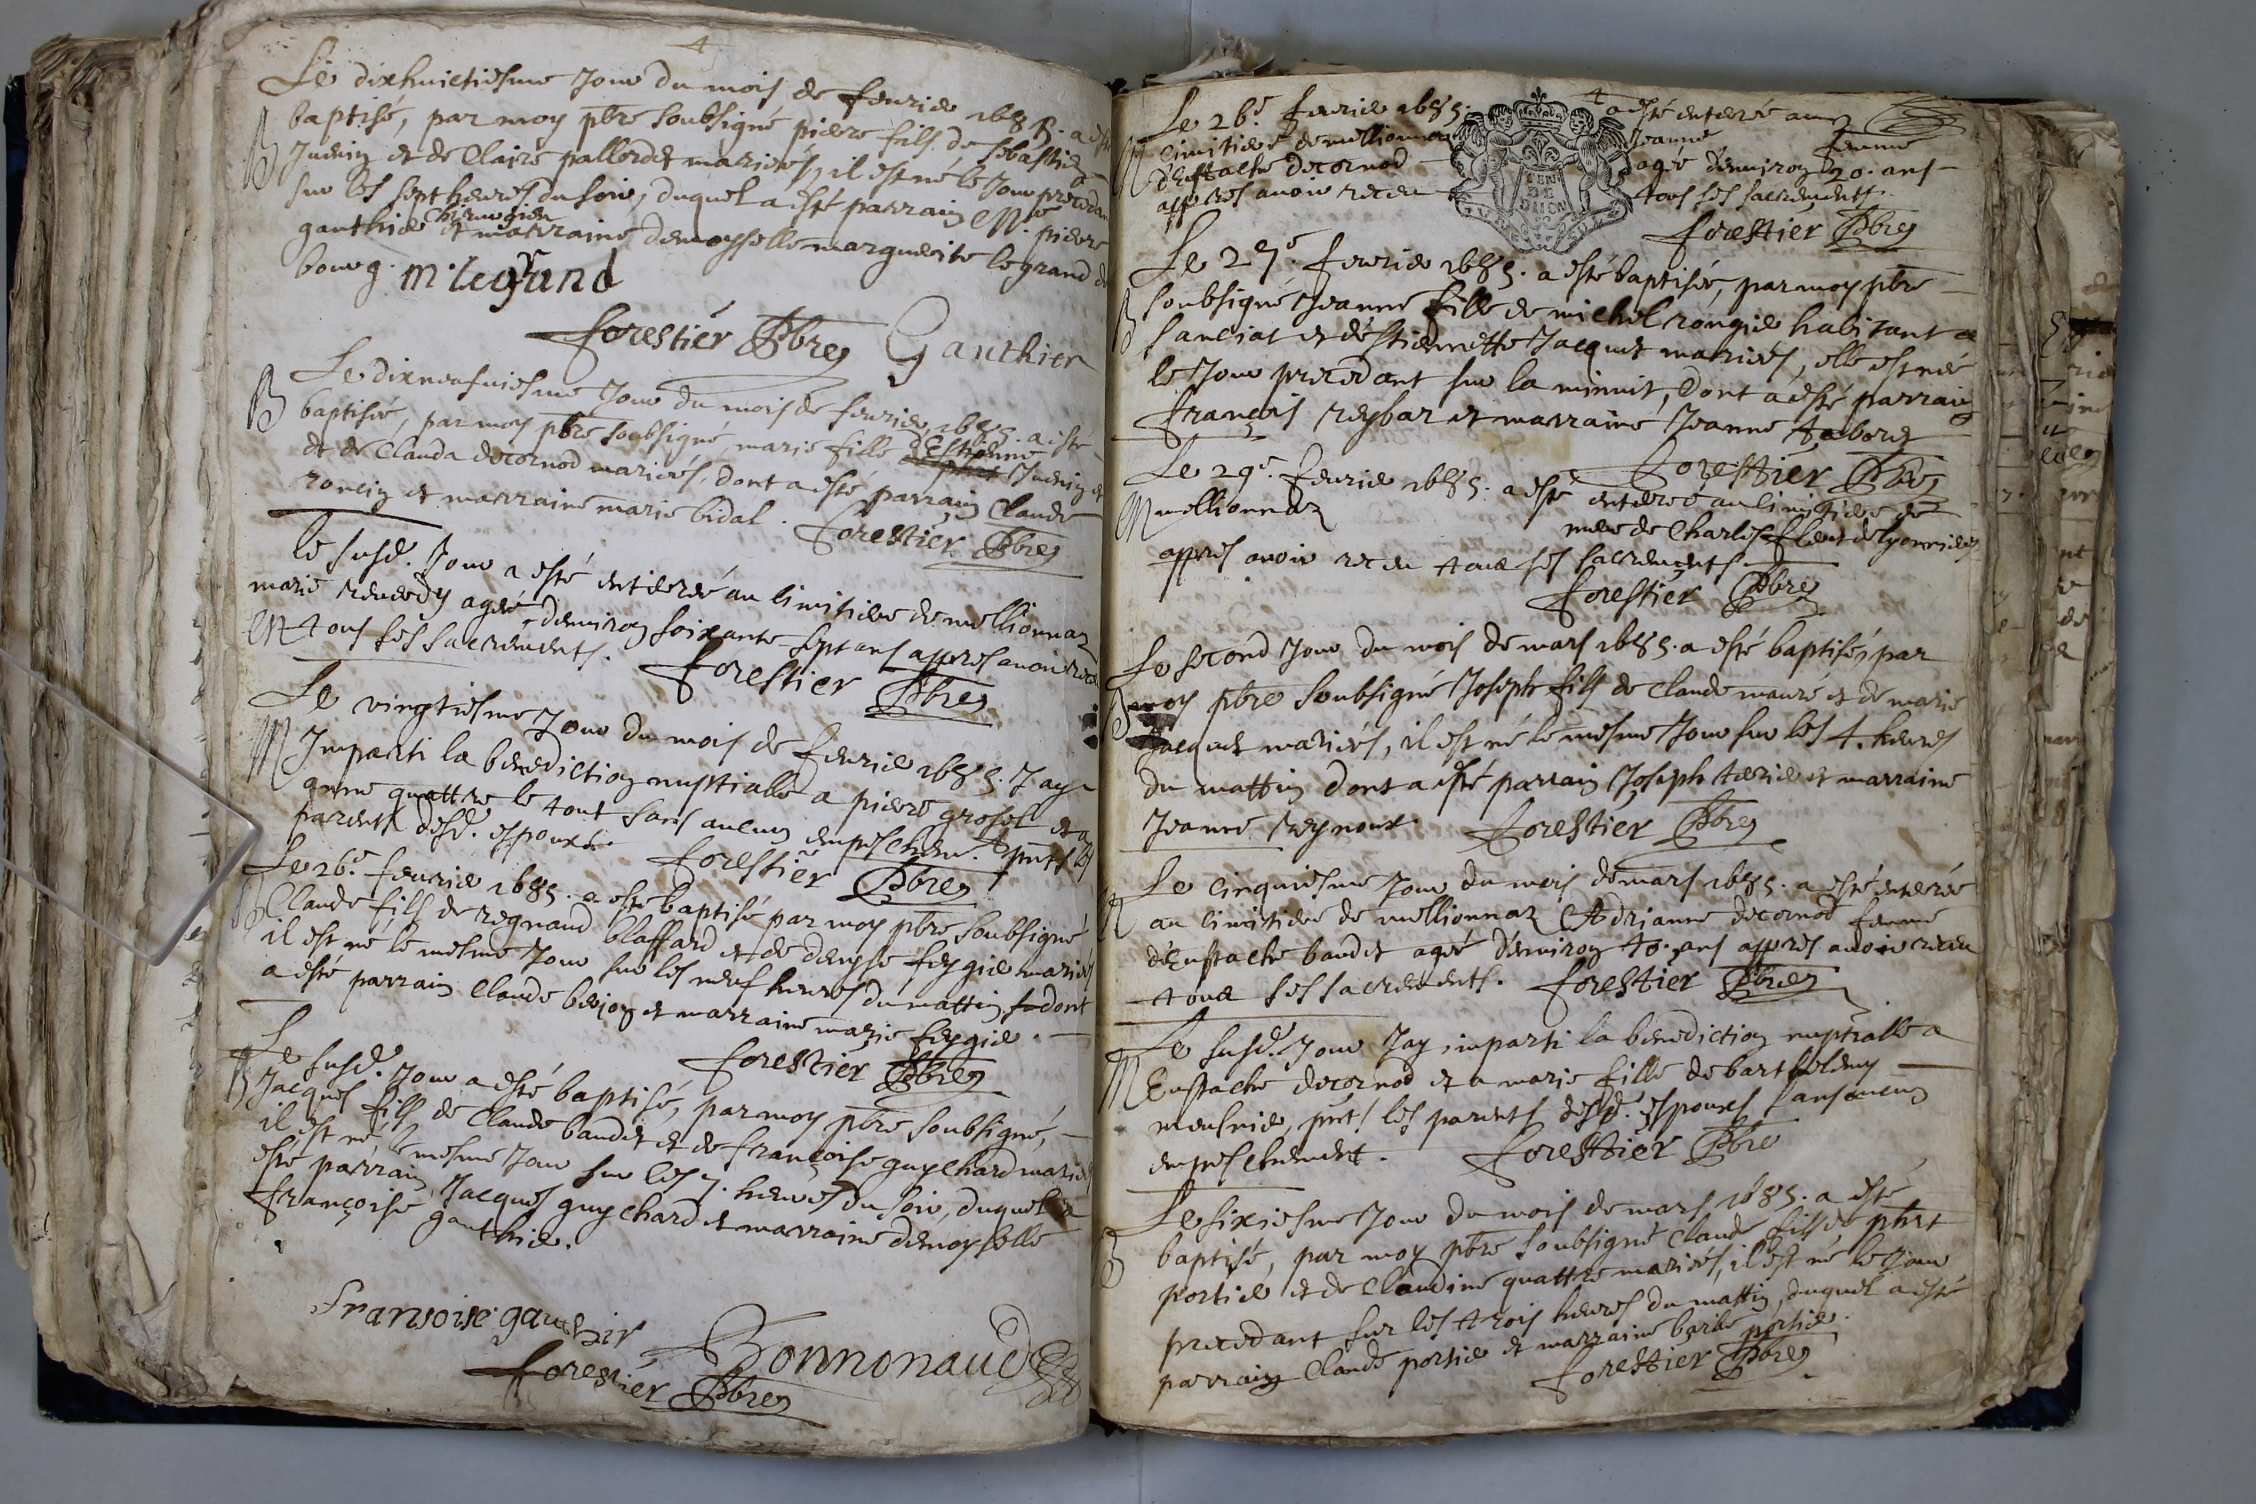 4
Le dixhuictiesme Jour du mois de feurier 1685. a esté
B baptisé, par moy pbre soubsigné pierre fils de sebastien
Juenin et de Claire palloudet mariés, il est né le Jour precedant
sur les sept heures du soir, duquel a esté parrain Mre. pierre
gauthier Chirurgien et marraine demoyselle marguerite legrand de
bourg. m legrand
forestier Pbre Gauthier
Le dixneufuiesme Jour du mois de feurier 1685. a esté
B baptisée, par moy pbre soubsigné marie fille d'Estienne Juenin
et de Clauda decornod mariés, dont a esté parrain Claude
roncin et marraine marie bidal. forestier Pbre
le susd. Jour a esté enterré au cimitiere de mellionnaz
marie agée d'enuiron soixante sept ans appres auoir receu
M tous ses sacrements. forestier Pbre
Le vingtiesme Jour du mois de feurier 1685. Jay
M Imparti la benediction nuptialle a pierre grosel et a
anne quattre le tout sans aucun empeschem. pnts les
parents desd. espouxs. forestier Pbre
Le 26e feurier 1685. a esté baptisé par moy pbre soubsigné
B Claude fils de regnaud blaffard et de denyse feygie mariés
il est né le mesme Jour sur les neuf heures du mattin dont
a esté parrain Claude berjon et marraine marie feygie.
forestier Pbre
Le susd. Jour a esté baptisé, par moy pbre soubsigné,
B Jacques fils de Claude baudet et de françoise guychard mariés
il est né le mesme Jour sur les 7. heures du soir, duquel a
esté parrain Jacques guychard et marraine demoyselle
françoise gauthier.
fransoise gauthier
Bonnonaud
forestier Pbre
4
Le 26e feurier 1685. a esté enterrée au
M cimitiere de mellionnaz Jeanne femme
d'Eustache decornod agée d'enuiron 20. ans
appres auoir receu tous ses sacrements.
forestier Pbre
Le 27e. feurier 1685. a esté baptisée, par moy pbre
B soubsigné Jeanne fille de michel rongie habitant a
sanciat et d'Estiennette Jacquet mariés, elle est née
le Jour precedant sur la minuit, dont a esté parrain
françois reybar et marraine Jeanne taboret
forestier Pbre
Le 29e. feurier 1685. a esté enterreé au cimitiere de
M mellionnaz mere de Charles
appres auoir receu tous ses sacrements
forestier Pbre
Le second Jour du mois de mars 1685. a esté baptisé, par
B moy pbre soubsigné Joseph fils de Claude mauré et de marie
Jacquet mariés, il est né le mesme Jour sur les 4. heures
du mattin dont a esté parrain Joseph terrier et marraine
Jeanne reynoux. forestier Pbre
Le cinquiesme Jour du mois de mars 1685. a esté enterrée
M au cimitiere de mellionnaz Adrianne decornod femme
d'Eustache baudet agée d'enuiron 40. ans appres auoir receu
tous ses sacrements. forestier Pbre
Le susd. Jour Jay imparti la benediction nuptialle a
M Eustache decornod et a marie fille de barthelemy
meusnier, pnt les parents desd. espouxs sans aucun
empeschement. forestier Pbre
Le sixiesme Jour du mois de mars 1685. a esté
B baptisé, par moy pbre soubsigné Claude fils de phbt
portier et de Claudine quattre mariés, il est né le Jour
precedant sur les trois heures du mattin, duquel a esté
parrain Claude portier et marraine barbe portier.
forestier Pbre